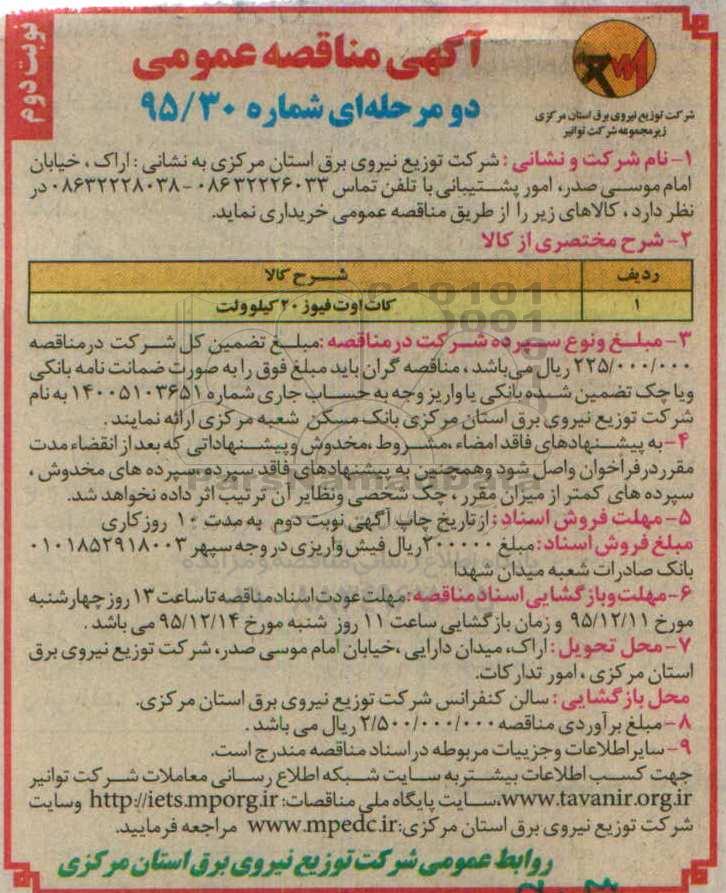 نوبت دوم
آگهی مناقصه عمومی
دو مرحله‌ای شماره ۹۵/۳۰
شرکت توزیع نیروی برق استان مرکزی
زیرمجموعه شرکت توانیر
۱- نام شرکت و نشانی : شرکت توزیع نیروی برق استان مرکزی به نشانی : اراک ، خیابان
امام موسی صدر، امور پشتیبانی با تلفن تماس ۰۸۶۳۲۲۲۶۰۳۳ - ۰۸۶۳۲۲۲۸۰۳۸ در
نظر دارد ، کالاهای زیر را از طریق مناقصه عمومی خریداری نماید.
۲- شرح مختصری از کالا
ردیف شرح کالا
۱ کات اوت فیوز ۲۰ کیلو ولت
۳- مبلغ ونوع سپرده شرکت در مناقصه :مبلغ تضمین کل شرکت درمناقصه
۲۲۵/۰۰۰/۰۰۰ ریال می‌باشد ، مناقصه گران باید مبلغ فوق را به صورت ضمانت نامه بانکی
ویا چک تضمین شده بانکی یا واریز وجه به حساب جاری شماره ۱۴۰۰۵۱۰۳۶۵۱ به نام
شرکت توزیع نیروی برق استان مرکزی بانک مسکن شعبه مرکزی ارائه نمایند .
۴- به پیشنهادهای فاقد امضاء ،مشروط ،مخدوش وپیشنهاداتی که بعد از انقضاء مدت
مقرر در فراخوان واصل شود وهمچنین به پیشنهادهای فاقد سپرده ،سپرده های مخدوش ،
سپرده های کمتر از میزان مقرر ، چک شخصی ونظایر آن ترتیب اثر داده نخواهد شد.
۵- مهلت فروش اسناد : از تاریخ چاپ آگهی نوبت دوم به مدت ۱۰ روز کاری
مبلغ فروش اسناد : مبلغ ۲۰۰۰۰۰ ریال فیش واریزی در وجه سپهر ۰۱۰۱۸۵۲۹۱۸۰۰۳
بانک صادرات شعبه میدان شهدا
۶- مهلت وبازگشایی اسناد مناقصه : مهلت عودت اسناد مناقصه تا ساعت ۱۳ روز چهارشنبه
مورخ ۹۵/۱۲/۱۱ و زمان بازگشایی ساعت ۱۱ روز شنبه مورخ ۹۵/۱۲/۱۴ می باشد .
۷- محل تحویل : اراک، میدان دارایی ،خیابان امام موسی صدر، شرکت توزیع نیروی برق
استان مرکزی ، امور تدارکات.
محل بازگشایی : سالن کنفرانس شرکت توزیع نیروی برق استان مرکزی.
۸- مبلغ برآوردی مناقصه ۲/۵۰۰/۰۰۰/۰۰۰ ریال می باشد .
۹- سایر اطلاعات وجزییات مربوطه در اسناد مناقصه مندرج است.
جهت کسب اطلاعات بیشتر به سایت شبکه اطلاع رسانی معاملات شرکت توانیر
www.tavanir.org.ir،سایت پایگاه ملی مناقصات: http://iets.mporg.ir وسایت
شرکت توزیع نیروی برق استان مرکزی:www.mpedc.ir مراجعه فرمایید.
روابط عمومی شرکت توزیع نیروی برق استان مرکزی